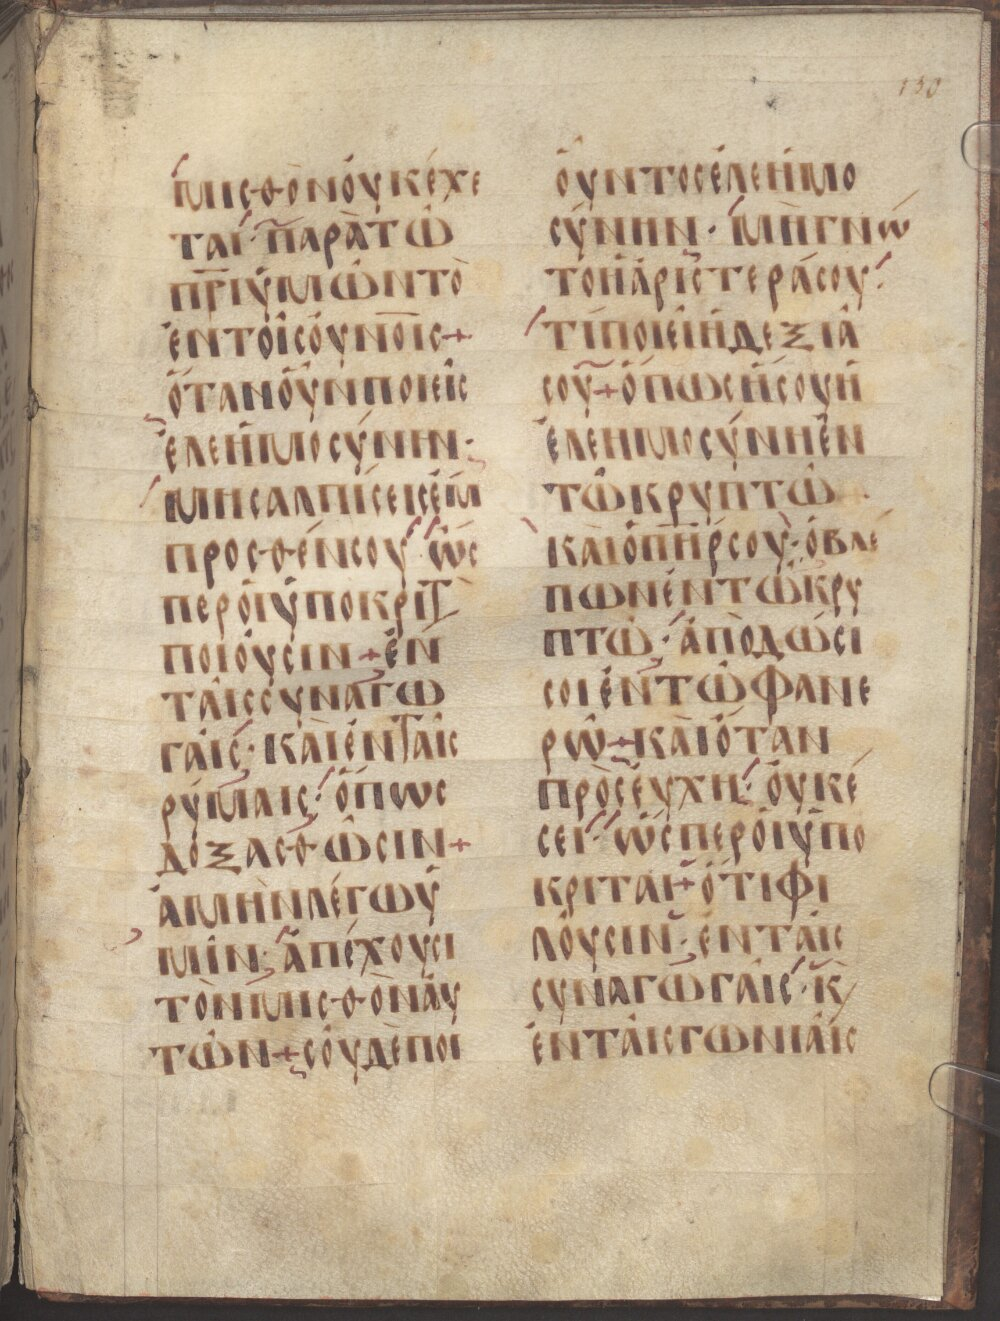 130
μισθὸν οὐκ ἔχε
ται· παρὰ τῶ
πρι ὑμῶν τὸ
ἐν τοῖς οὐνοις+
ὅταν οὖν ποιεῖς
ἐλεημοσύνην·
μὴ σαλπίσεις ἔμ
προσθέν σου· ὥς
περ οἱ ὑποκριτ
ποιοῦσιν+ἐν
ταῖς συναγω
γαῖς· καὶ ἐν ταῖς
ρύμαις· ὅπως
δοξασθῶσιν+
ἀμὴν λέγω ὑ
μῖν· ἀπέχουσι
τὸν μισθὸν αὐ
τῶν+σοῦ δὲ ποι
οῦντος ἐλεημο
σύνην· μὴ γνώ
τω ἡ ἀριστερά σου·
τί ποιεῖ ἡ δεξιά
σου+ὅπως ἦ σου ἡ
ἐλεημοσύνη ἐν
τῶ κρυπτῶ·
καὶ ὁ πηρ σου· ὁ βλέ
πων ἐν τῶ κρυ
πτῶ· ἀποδώσι
σοι ἐν τῶ φανε
ρῶ+καὶ ὅταν
προσεύχη· οὐκ ἔ
σει· ὥσπερ οἱ ὑπο
κριταί+ὅτι φι
λοῦσιν· ἐν ταῖς
συναγωγαῖς· κ
ἐν ταῖς γωνίαις